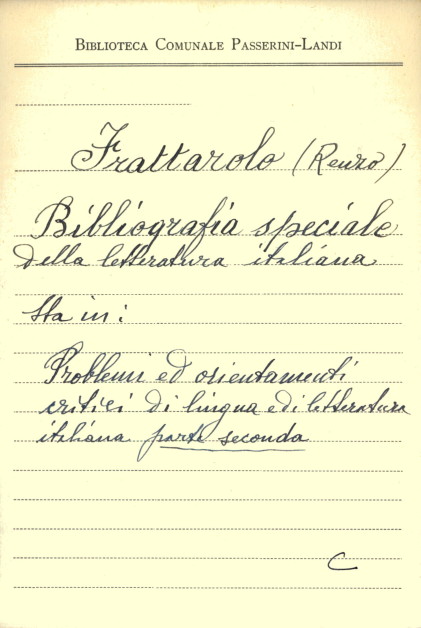 BIBLIOTECA COMUNALE PASSERINI-LANDI
Frattarolo (Renzo)
Bibliografia speciale
della letteratura italiana
Sta in:
Problemi ed orientamenti
critici di lingua e di letteratura
italiana parte seconda
C